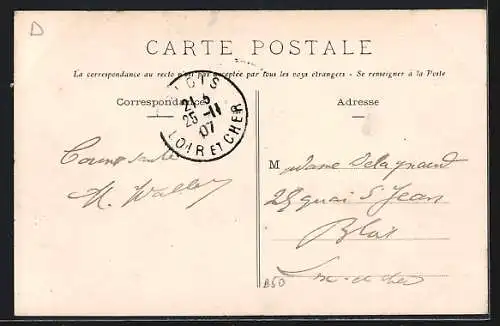 D
CARTE POSTALE
La correspondance au recto n'est pas acceptée par tous les pays étrangers - Se renseigner à la Poste
Correspondance
Adresse
21 5
25 -11
07
LOIR ET CHER
Madame Delagnard
25 quai St Jean
Blois
Loir et cher
B50